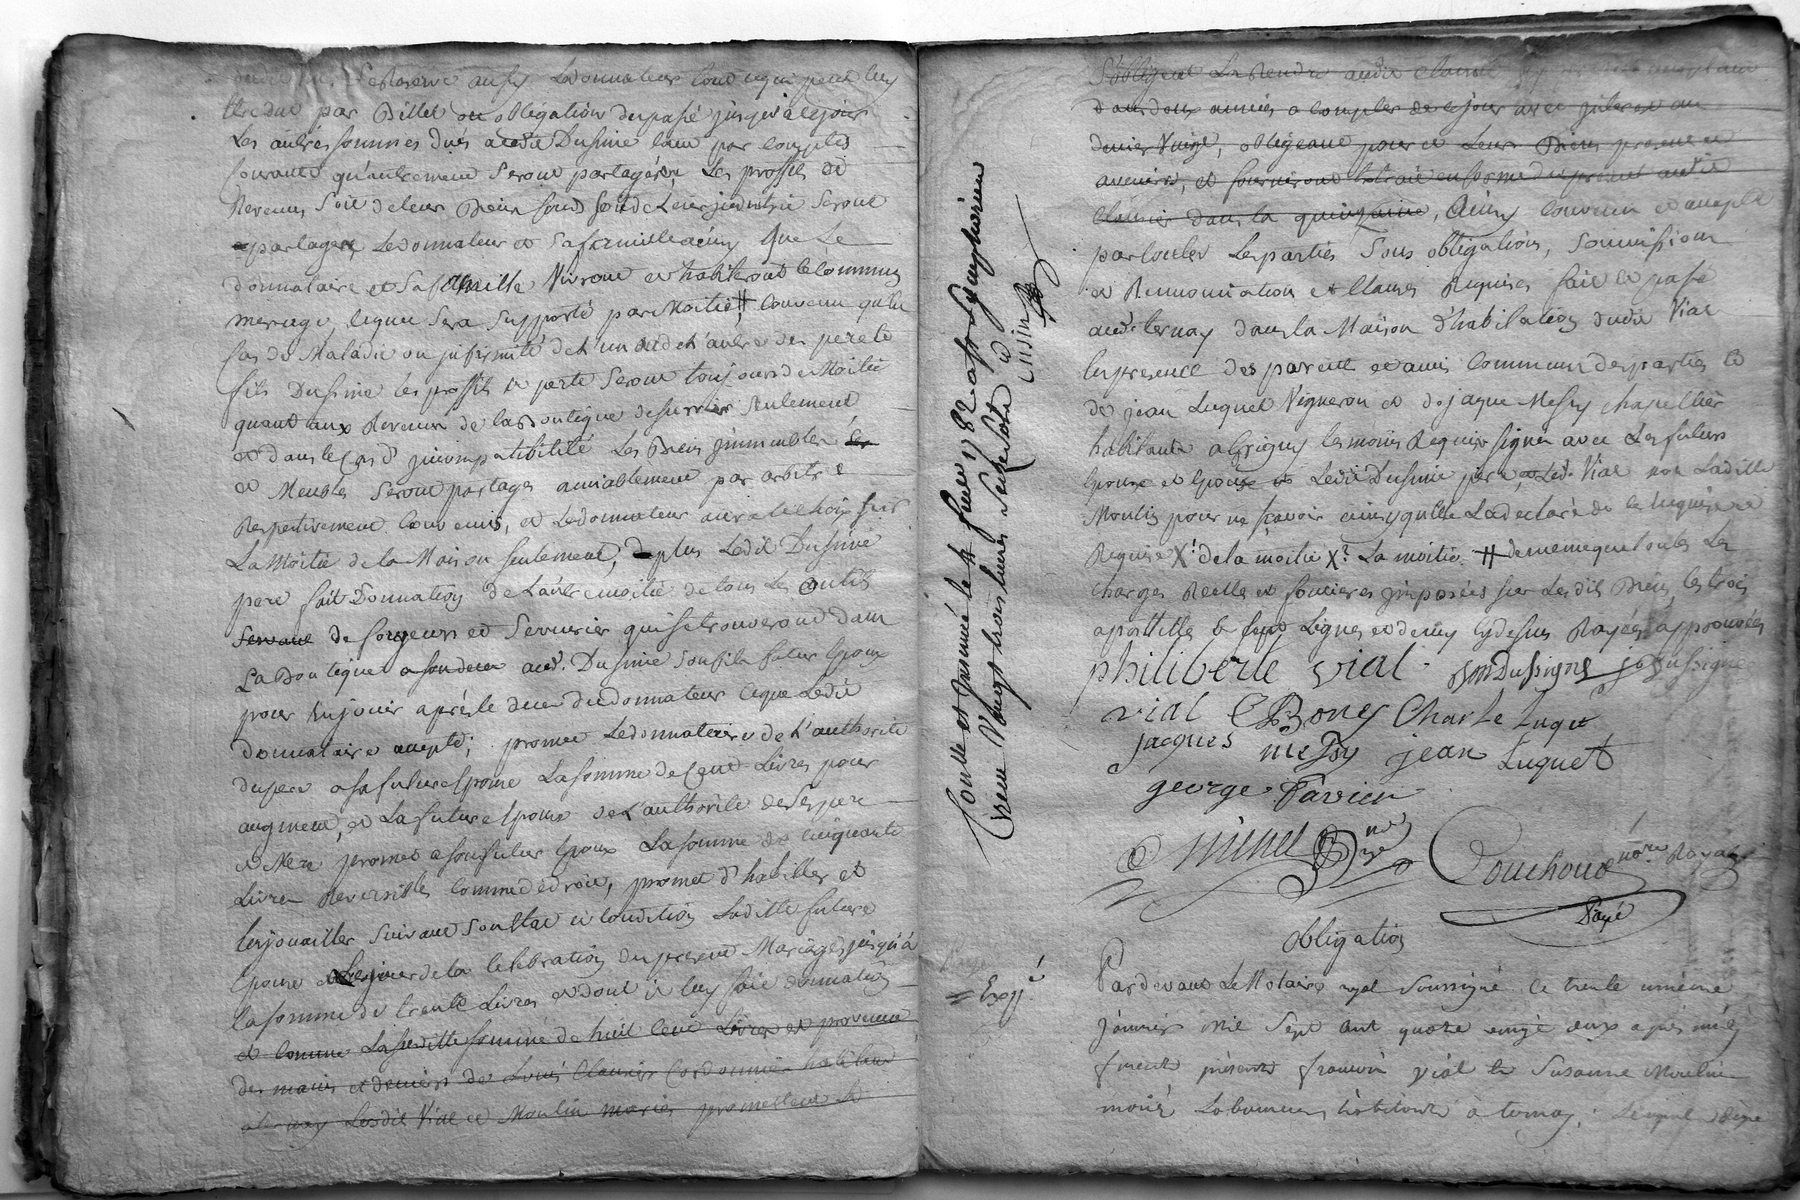 Se Reserve aussy Ledonnateur tout ce qui peut luy
être due par Billet ou obligation du passé jusqu'à ce jour
Les autres sommes dues audit Dusigne tant par comptes
Courants qu'autrement seront partagées, Les proffits de
Revenus soit de leur Biens fonds soit de Leur jndustrie seront
partagés, Ledonnateur et sa famille ainsy que Le
donnataire et sa famille Vivront et habiteront le commun
menage, lequel sera supporté par Moitié # Convenu qu'en
Cas de Maladie ou jnfirmité de L'un ou de L'autre des pere et
fils Dusigne les proffits et perte seront toujours de Moitié
quant aux Revenus de la Boutique de serrurier seulement
et dans le Cas d'jncompatibilité Les Biens jmmeubles
et Meubles seront partagés amiablement par arbitre
Respectivement Convenus, et Ledonnateur aura le choix sur
La Moitié de la Maison seulement, De plus Ledit Dusigne
pere fait Donnation de L'autre moitié de tous Les outils
servant de forgeur et serrurier qui se trouveront dans
La Boutique a son deces aud. Dusigne son fils futur Epoux
pour En jouir après le deces du donnateur ce que Ledit
donnataire accepte; promet Ledonnataire de L'authorité
du pere a sa future Epouse La somme de Cent Livres pour
augment, et La future Epouse de L'authorité de ses pere
et Mere promet a son futur Epoux La somme de cinquante
Livres Reversibles comme de droit, promet d'habiller et
Enjouailler suivant son Etat et condition Ladite future
Epouse Le jour de la celebration du present Mariage jusqu'à
la somme de trente Livres et dont il luy fait donnation
et comme La susditte somme de huit Cent Livres est provenue
des mains et deniers de Louis Claunier Cordonnier habitant
a ternay Lesdit Vial et Moulin mariés promettent et
S'obligent La Rendre audit Claunier
dans deux années a compter de ce jour avec jnterest au
denier Vingt, obligeant pour ce Leurs Biens present et
avenirs, et fourniront Extrait en forme du present audit
Claunier dans la quinzaine, Ainsy Convenu et accepté
par toutes Les parties sous obligations, soumissions
et Rennonciations et Clauses Requises fait et passé
aud. ternay dans la Maison d'habitation dudit Vial
En presence des parents et amis communs des parties et
de jean Luquet Vigneron et de jaque Messy chapellier
habitants a Grigny temoins Requis signés avec Les futurs
Epoux et Epouse et Ledit Dusigne pere, et Led. Vial non Laditte
Moulin pour ne sçavoir ainsy qu'elle La declaré de ce Enquise et
Requise X. de la moitié X? La moitié. # de meme que toutes Les
charges Reelles et foncieres jmposées sur Lesdits Biens, les trois
apostilles & sept Lignes et demy cy dessus Rayées approuvées
philiberte vial Simon Dussigne j Dussigne
vial C Boney Charle Luquet
jacques messy jean Luquet
george Tavier
Couchoud nore Royal
Payé
Conlle et Jnsinué le 4 fevr 1782 a st Simphorien
Reçu Vingt trois livres
Cusin
obligation
Expé
Pardevant Le Notaire royal soussigné Ce trente unième
janvier mil sept cent quatre vingt deux après midy
furent présents françois vial et Suzanne Moulin
mariés Laboureurs, habitants à ternay,